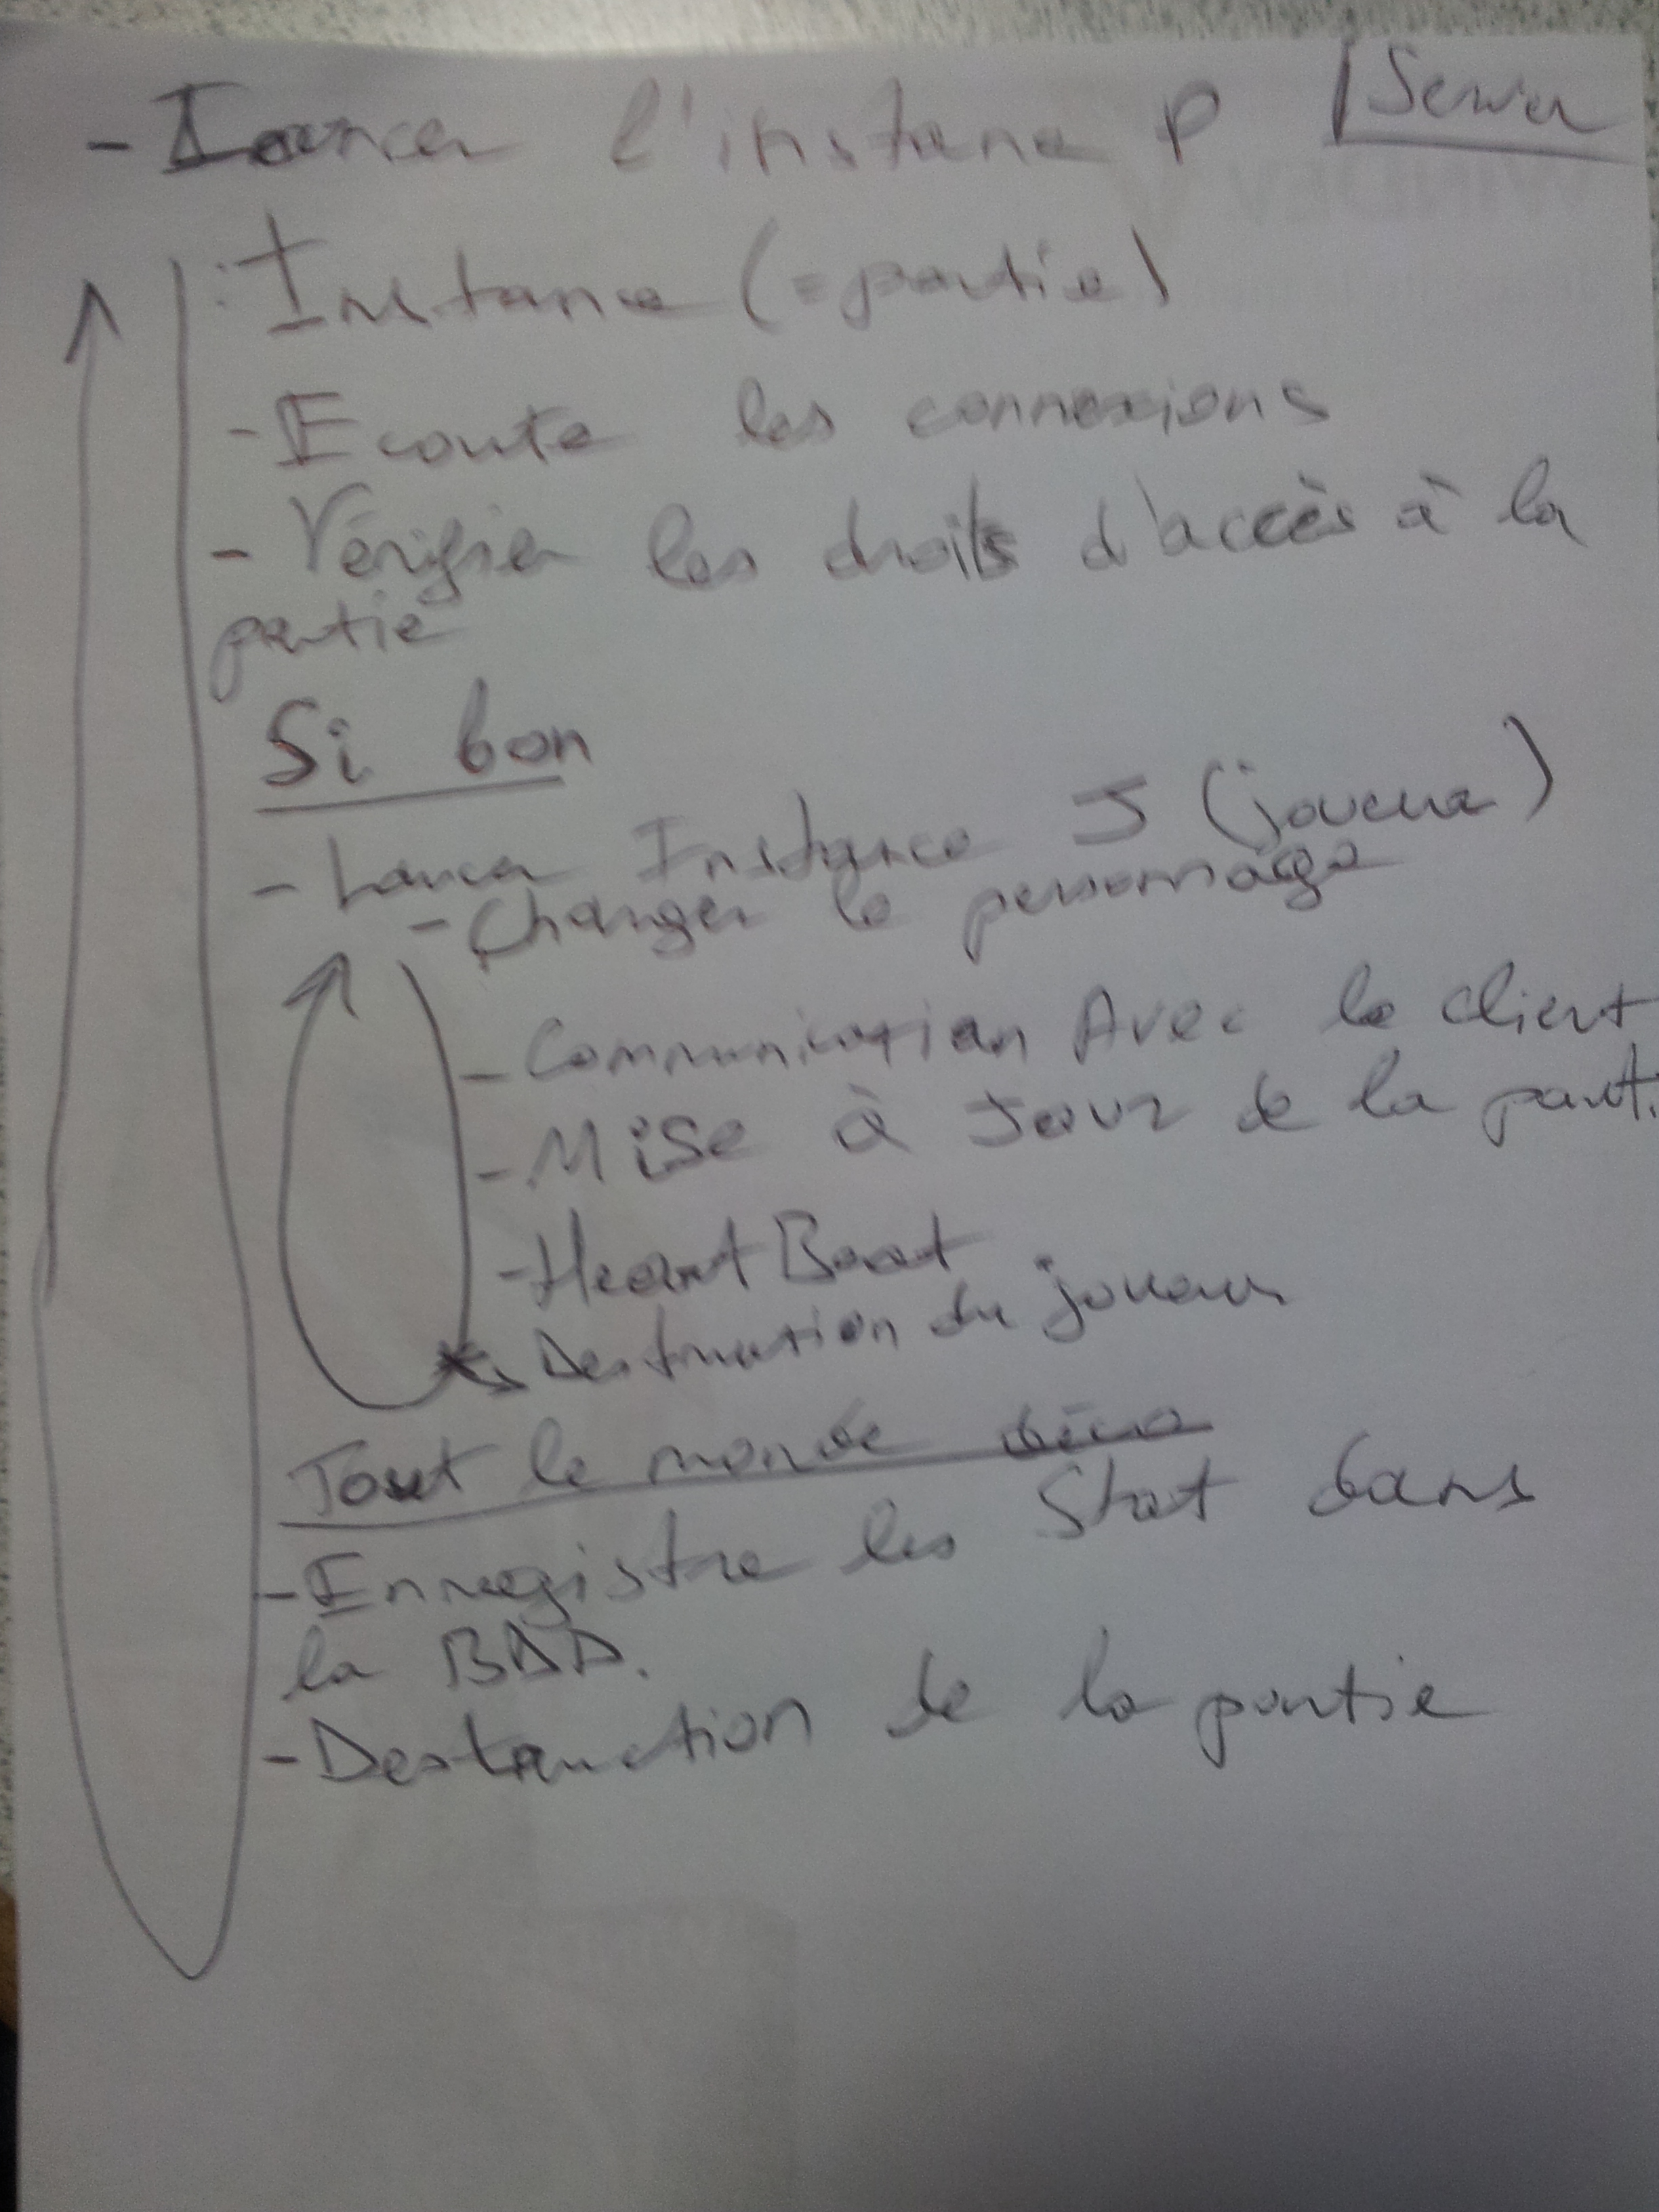 - Lancer l'instance P
Server
Instance (= partie)
- Ecoute les connexions
- Vérifier les droits d'accès à la
partie
Si bon
- Lancer Instance J (joueur)
- Charger le personnage
- Communication Avec le client
- Mise à Jour de la parti
- HeartBeat
Destruction du joueur
Tout le monde déco
- Enregistre les Stat dans
la BDD.
- Destruction de la partie